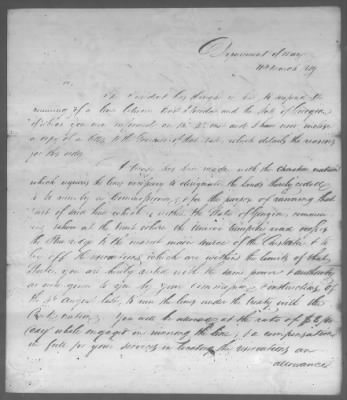 Department of War
March 1819
The President has thought
running of a line between East Florida and the State of Georgia
of which you are informed on the and I have now enclose
a copy of a letter to the Governor of that State which details the reasons
for this order.
A Treaty has been made with the Cherokee nation
which requires the lines necessary to designate the lands thereby ceded
to be run by a Commissioner; & for the purpose of running that
part of said line which is within the State of Georgia, commencing
at the point where the Unicoi turnpike road crosses
the Blue ridge to the nearest main source of the Chestatee & to
lay off the reservations which are within the limits of that
State, you are hereby with the same power & authority
as were given to you by your Commission & instructions of
the August last, to run the lines under the treaty with the
Creek nation. You will be allowed at the rate of per
day while engaged in running the line, & a compensation
in full for your services in locating the reservations an
allowance